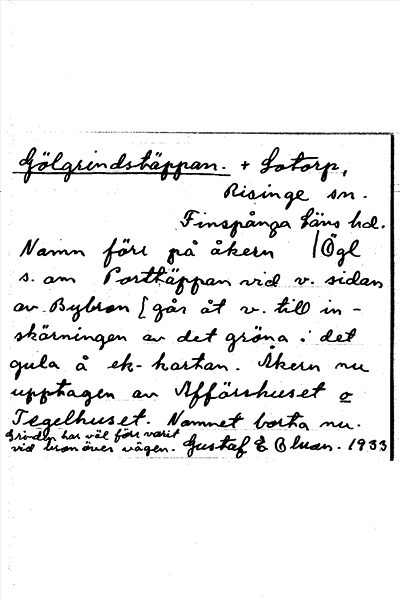 Gölgrindstäppan. + Lotorp,
Risinge sn.
Finspånga läns hd.
Namn förr på åkern / Ögl
s. om Porttäppan vid v. sidan
av Bybron [går åt v. till in-
skärningen av det gröna i det
gula å ek-kartan. Åkern nu
upptagen av Affärshuset o
Tegelhuset. Namnet borta nu.
Grinden har väl förr varit
vid bron över vägen. Gustaf E 1933